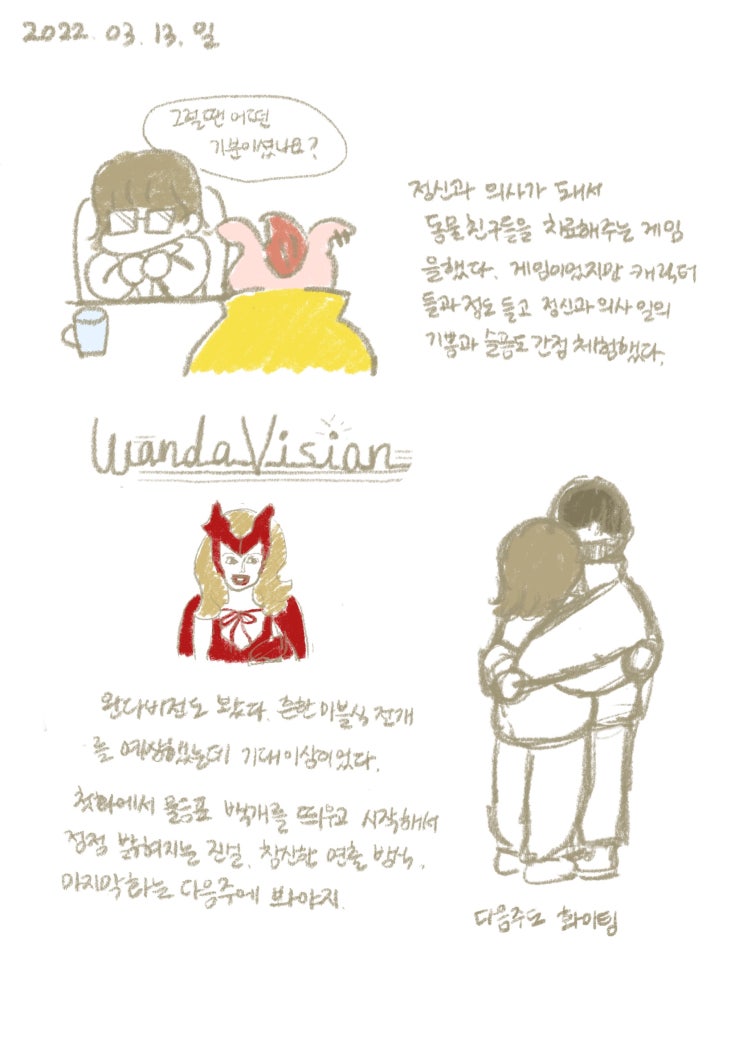 2022. 03. 13. 일
그럴땐 어떤
기분이셨나요?
정신과 의사가 돼서
동물친구들을 치료해주는 게임
을했다. 게임이었지만 캐릭터
들과 정도 들고 정신과 의사 일의
기쁨과 슬픔도 간접 체험했다.
WandaVision
완다비전도 봤다. 흔한 마블식 전개
를 예상했는데 기대이상이었다.
첫화에서 물음표 백개를 띄우고 시작해서
점점 밝혀지는 진실. 참신한 연출 방식.
마지막화는 다음주에 봐야지.
다음주도 화이팅